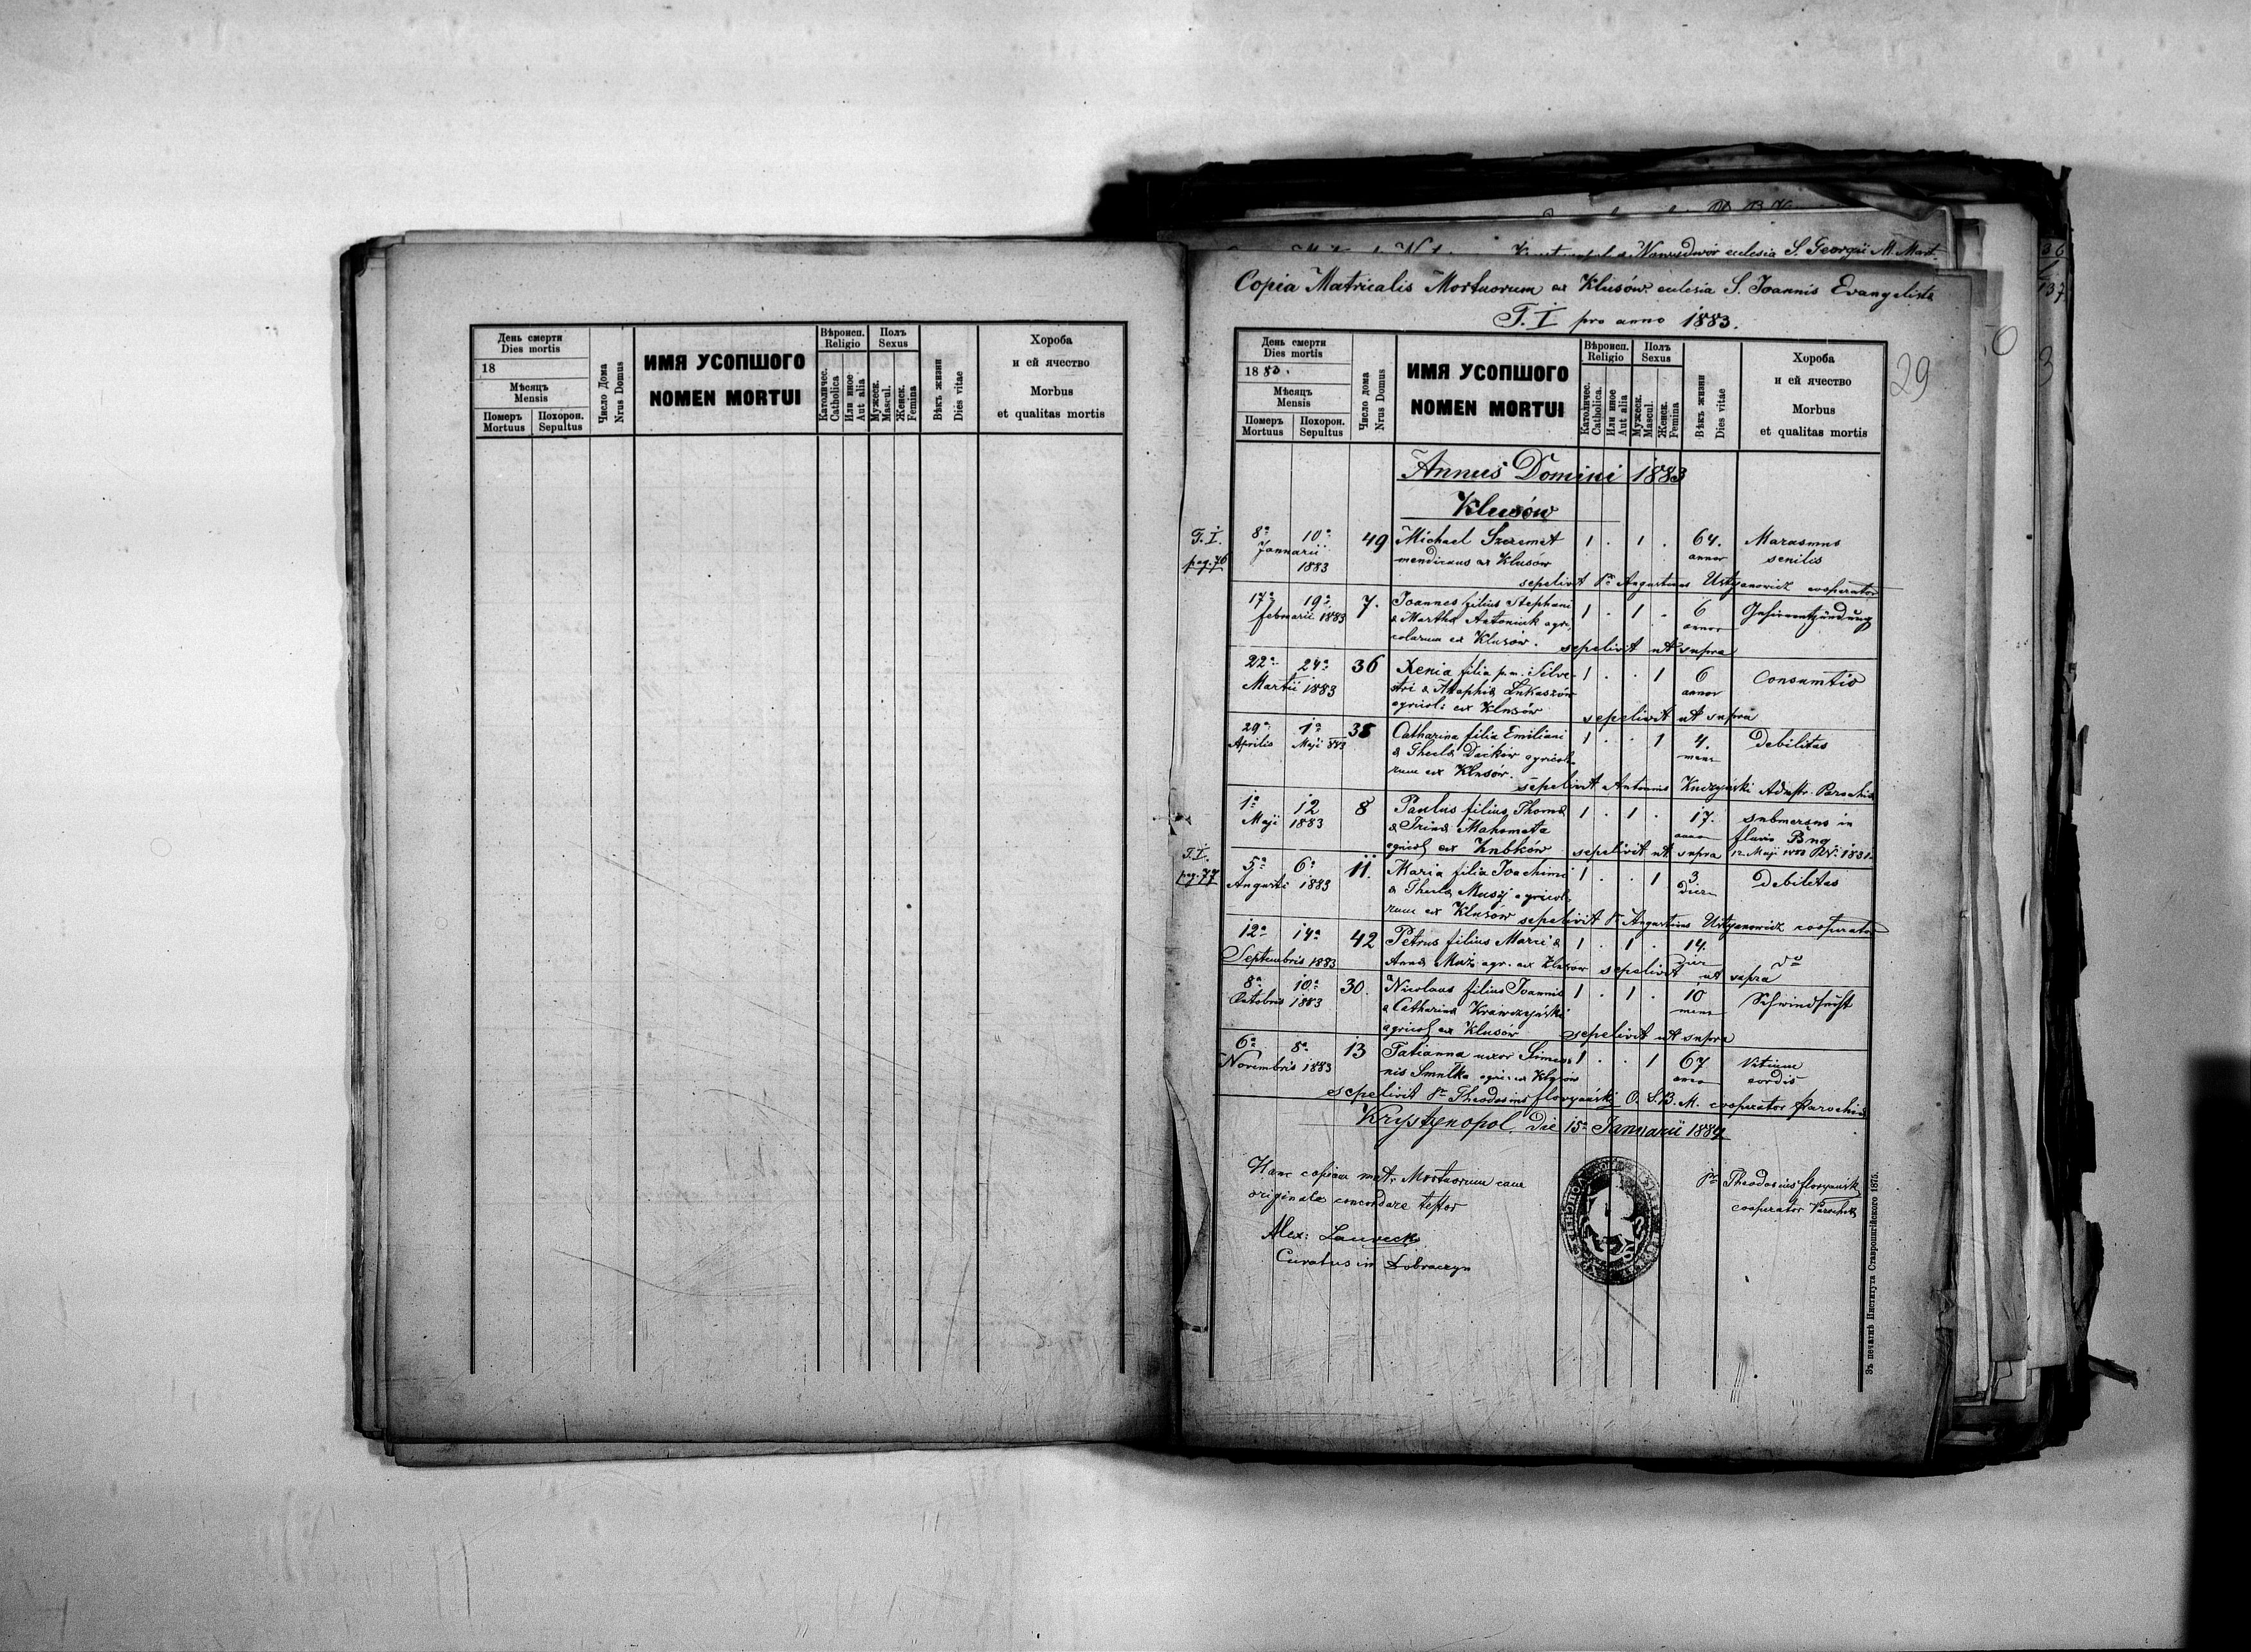 День смерти
Dies mortis
18
Мѣсяцъ
Mensis
Померъ
Mortuus
Похорон.
Sepultus
Число Дома
Nrus Domus
ИМЯ УСОПШОГО
NOMEN MORTUI
Вѣроисп.
Religio
Католичес.
Catholica
Или иное
Aut alia
Полъ
Sexus
Мужеск.
Mascul.
Женск.
Femina
Вѣкъ жизни
Dies vitae
Хороба
и ей ячество
Morbus
et qualitas mortis
Nowydwór ecclesia S. Georgii M. Mart.
Copia Matricalis Mortuorum ex Klusów ecclesia S. Joannis Evangelista
T. I pro anno 1883.
29
День смерти
Dies mortis
1883.
Мѣсяцъ
Mensis
Померъ
Mortuus
Похорон.
Sepultus
Число дома
Nrus Domus
ИМЯ УСОПШОГО
NOMEN MORTUI
Вѣроисп.
Religio
Католичес.
Catholica.
Или иное
Aut alia
Полъ
Sexus
Мужеск.
Mascul.
Женск.
Femina
Вѣкъ жизни
Dies vitae
Хороба
и ей ячество
Morbus
et qualitas mortis
Annus Domini 1883
Klusów
T. I. 8a 10a 49 Michael Szeremet 1 . 1 . 64. Marasmus
pag. 76 Januarii mendicans ex Klusów annor senilis
1883
sepelivit Pr Augustinus Ustyanowicz cooperator
17a 19a 7. Joannes filius Stephani 1 . 1 . 6 Gehirnentzündung
februarii 1883 & Martha Antoniuk agri annor
colarum ex Klusów. sepelivit ut supra
22a 24a 36 Xenia filia p.m. Silve- 1 . . 1 6 Consumtio
Martii 1883 stri & Agaphia Lukaszów annor
agricol: ex Klusów sepelivit ut supra
29a 1a 38 Catharina filia Emiliani 1 . . 1 4. Debilitas
Aprilis Maji 883 & Thecla Daćków agricola mens
rum ex Klusów.
sepelivit Antonius Adnstr. Parochia
1a 12 8 Paulus filius Thoma 1 . 1 . 17. submersus in
Maji 1883 & Irina Mahometa anno fluvio Bug
agricol ex sepelivit ut supra 12 Maji
T. I. 5a 6a 11. Maria filia Joachimi 1 . . 1 3 Debilitas
pag. 77 Augusti 1883 & Thecla Musij agricol dier
rum ex Klusów sepelivit Pr Augustinus Ustyanowicz cooperator
12a 14a 42 Petrus filius Marci & 1 . 1 . 14. do
Septembris 1883 Anna agr. ex Klusów dier
sepelivit ut supra
8a 10a 30. Nicolaus filius Joannis 1 . 1 . 10 Schwindsucht
Octobris 1883 & Catharina Krawczyński mens
agricol ex Klusów sepelivit ut supra
6a 8a 13 Tatianna uxor Simeo- 1 . . 1 67 Vitium
Novembris 1883 nis Smulka agric ex Klusów anno cordis
sepelivit Pr Theodosius Floryański O. S. B. M. cooperator Parochia
Krystynopol, Die 15a Januarii 1884
Hanc copiam matr. Mortuorum cum
originale concordare testor
Alex:
Curatus in Dobraczyn
Pr Theodosius Floryański
cooperator Parochia
Зъ печатнѣ Института Ставропигійского 1875.